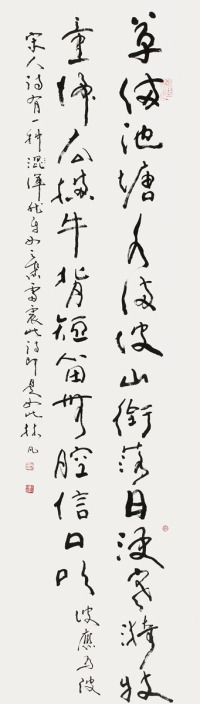 草满池塘水满波山銜落日浸寒漪牧
童歸去横牛背短笛無腔信口吹 波應为陂
宋人诗有一种混渾雷震此诗即是如此林凡